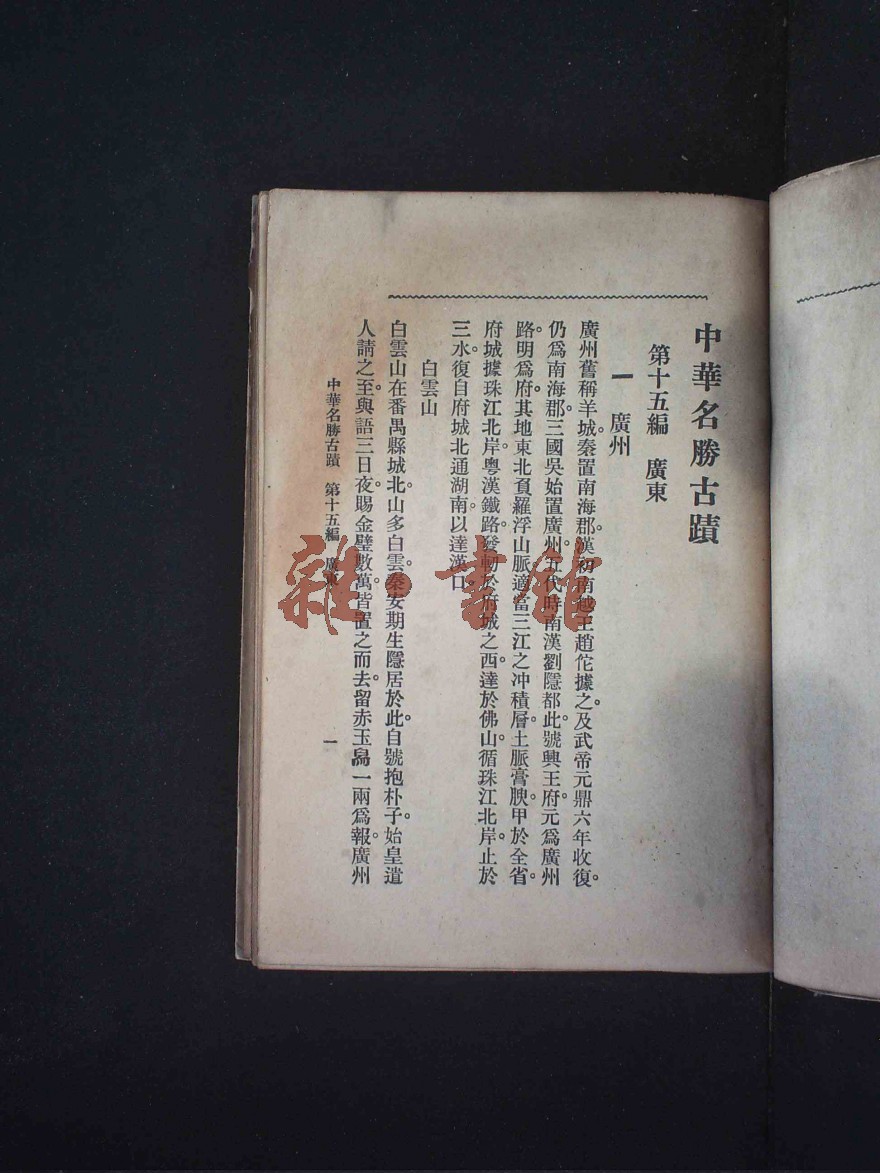 中華名勝古蹟
第十五編　廣東
一　廣州
廣州舊稱羊城。秦置南海郡。漢初南越王趙佗據之。及武帝元鼎六年收復。
仍爲南海郡。三國吳始置廣州。五代時南漢劉隱都此。號興王府。元爲廣州
路。明爲府。其地東北負羅浮山脈。適當三江之冲積層。土脈膏腴。甲於全省。
府城據珠江北岸。粵漢鐵路發軔於府城之西。達於佛山。循珠江北岸。止於
三水。復自府城北通湖南。以達漢口。
白雲山
白雲山在番禺縣城北。山多白雲。秦安期生隱居於此。自號抱朴子。始皇遣
人請之至。與語三日夜。賜金璧數萬。皆置之而去。留赤玉舃一兩爲報。廣州
中華名勝古蹟　第十五編　廣東
一
雜·書館